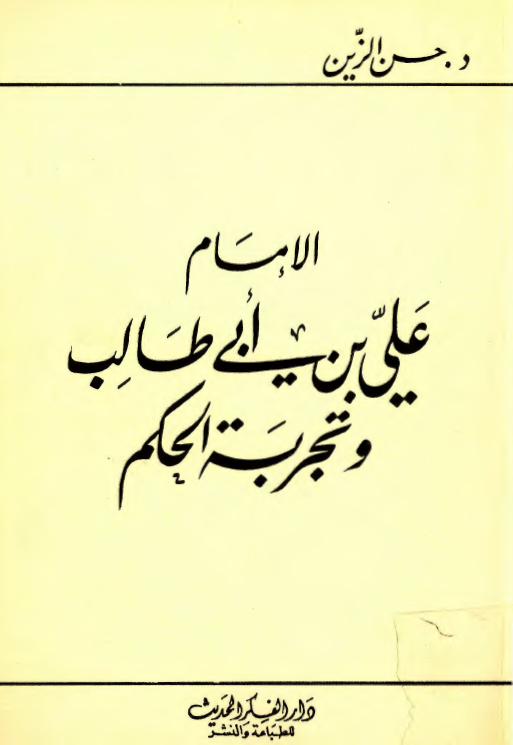 د. حسن الزّين
الإمَام
عَليّ بن أبي طَالِب
وتجربَة الحكم
دَار الفِكر الحَديث
للطبَاعَة والنشر